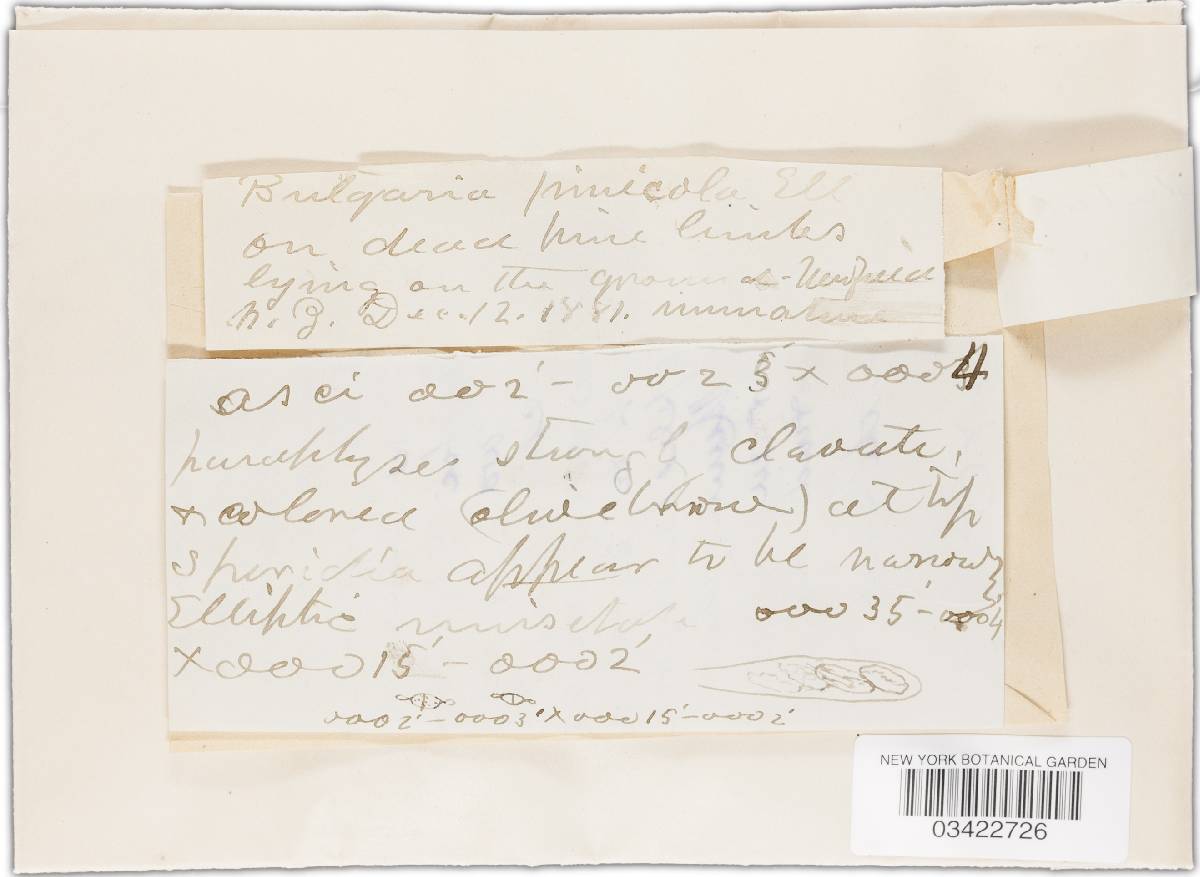 Bulgaria pinicola Ell
on dead pine limbs
lying on the ground - Newfield
N. J. Dec. 12. 1881. immature
asci 002' - 0025' x 0004
paraphyses strongly clavate,
+ colored (olive brown) at tip
sporidia appear to be narrow
Elliptic 00035' - 0004
x 00015' - 0002'
0002' - 0003' x 00015' - 0002'
NEW YORK BOTANICAL GARDEN
03422726